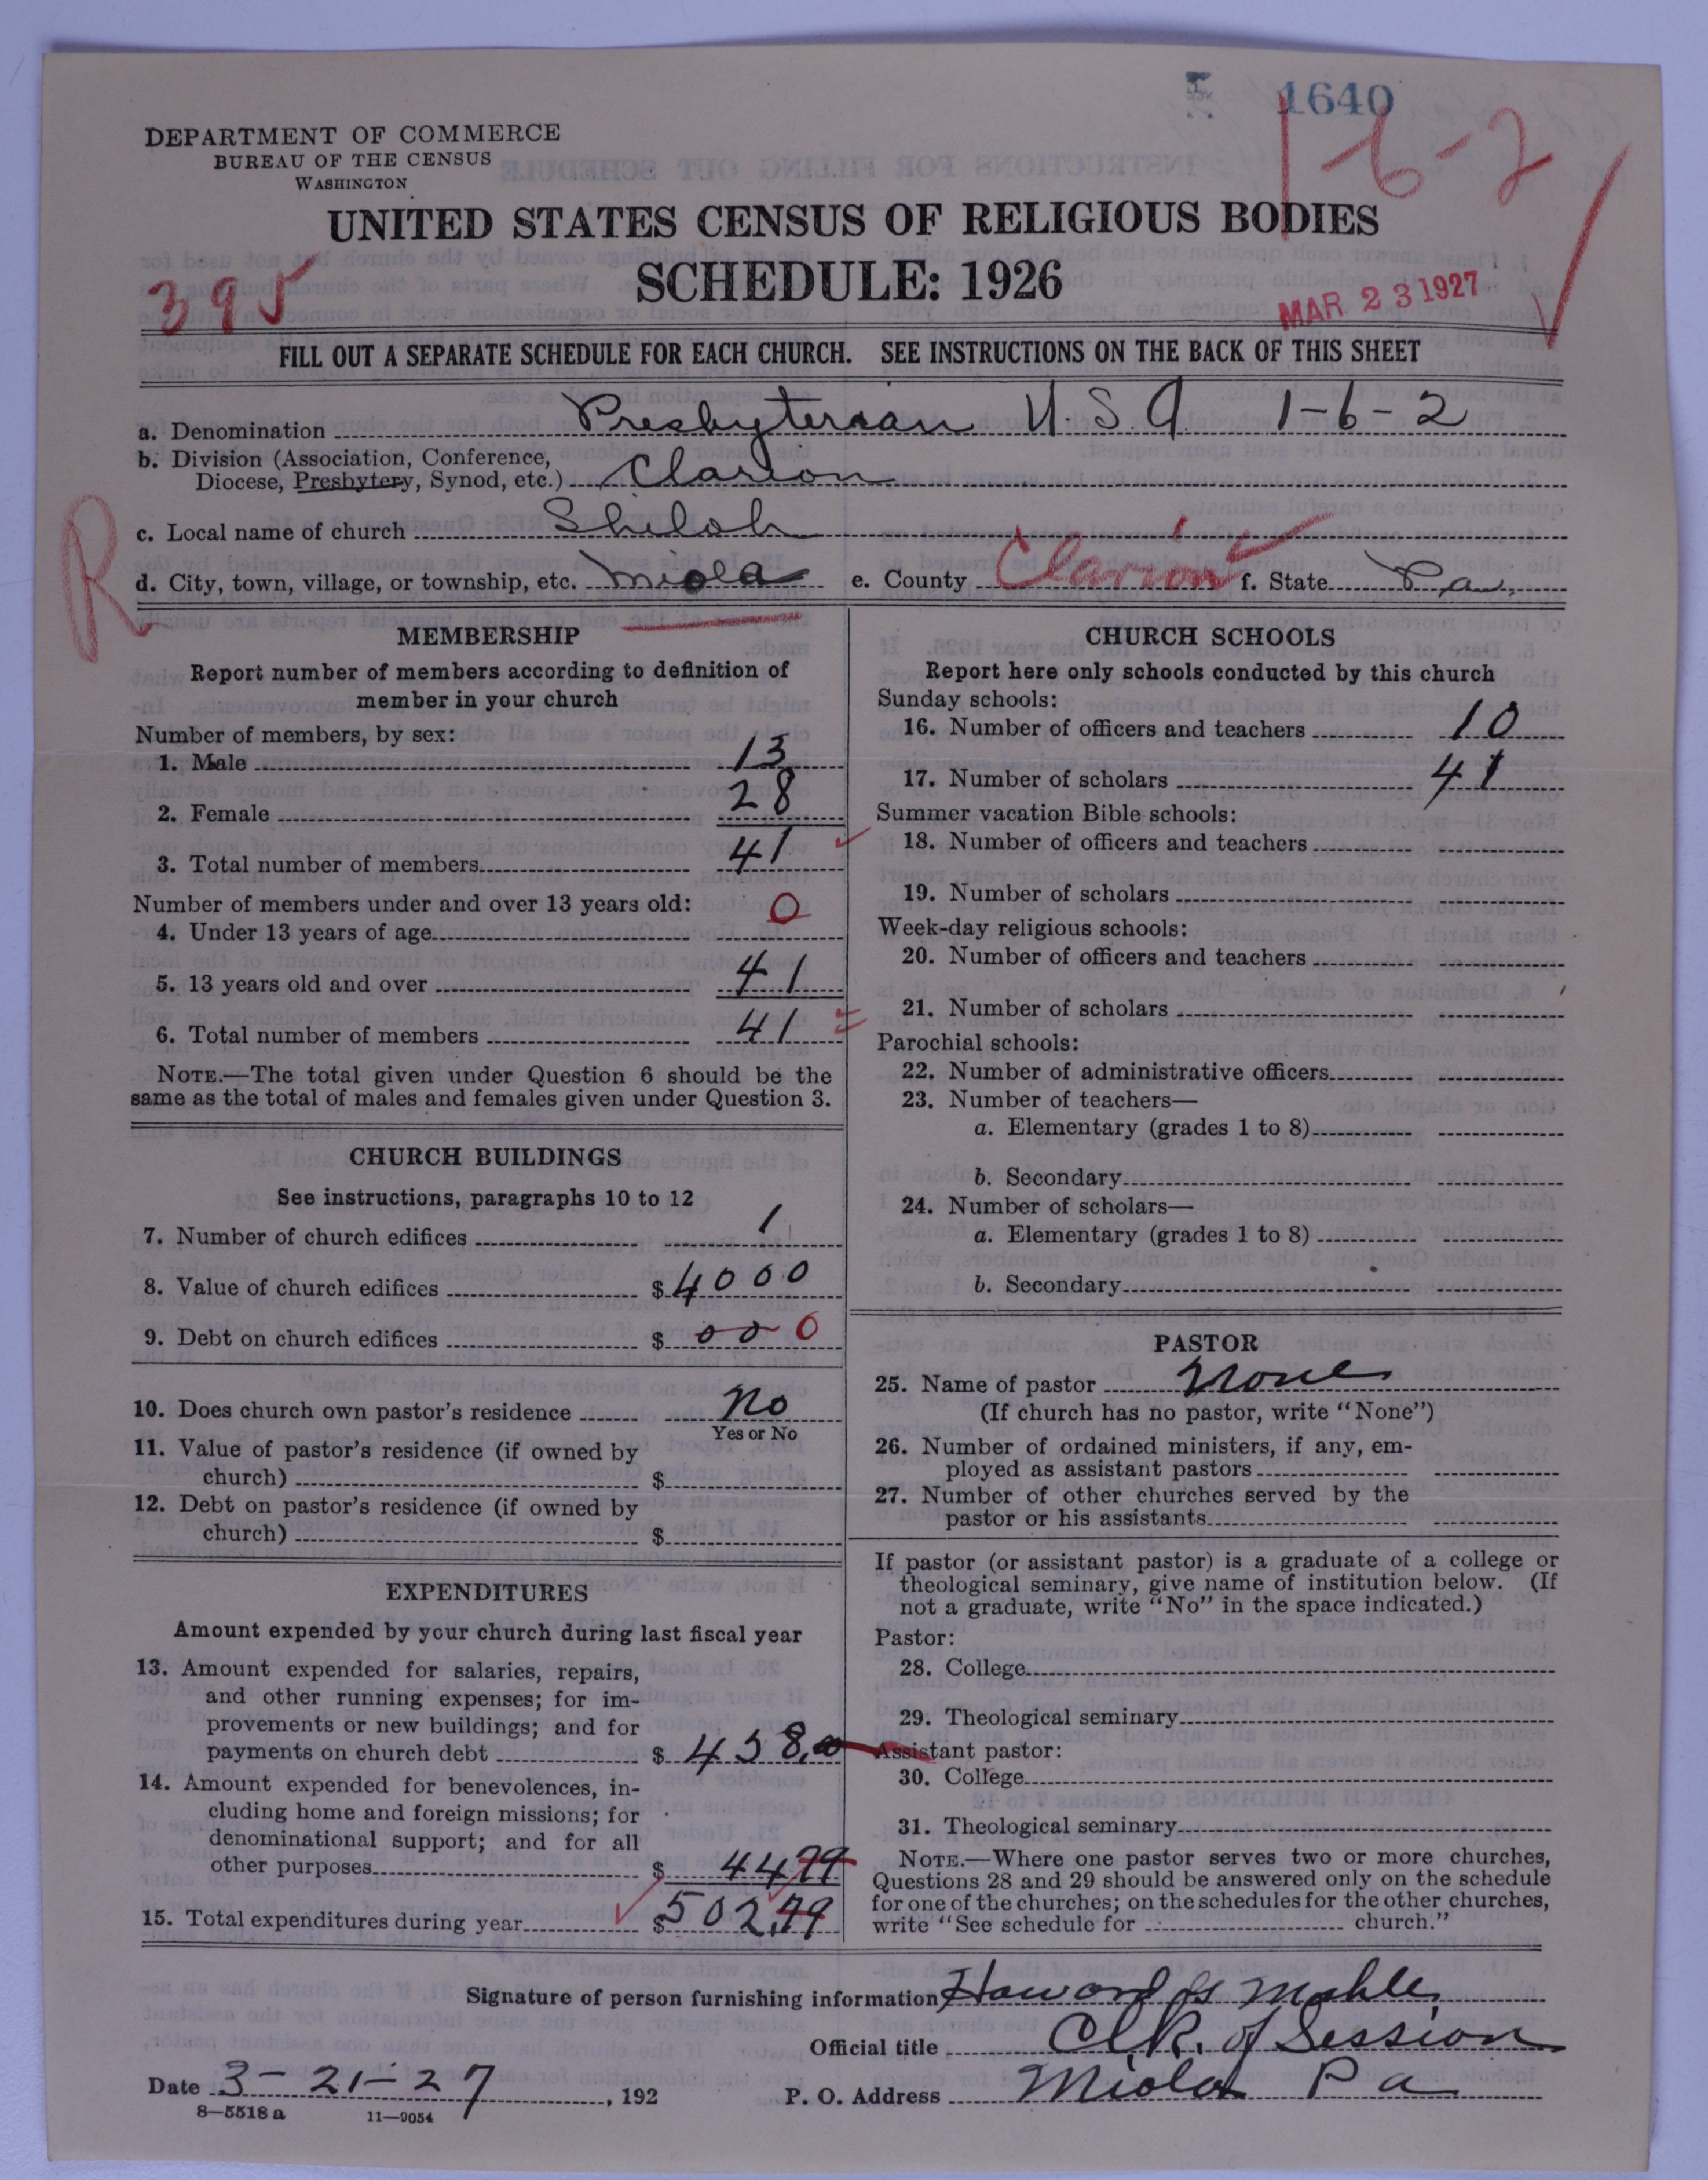 1640
1-6-2
DEPARTMENT OF COMMERCE
BUREAU OF THE CENSUS
WASHINGTON
UNITED STATES CENSUS OF RELIGIOUS BODIES
SCHEDULE: 1926
395
MAR 23 1927
FILL OUT A SEPARATE SCHEDULE FOR EACH CHURCH. SEE INSTRUCTIONS ON THE BACK OF THIS SHEET
a. Denomination Presbyterian U.S.A. 1-6-2
b. Division (Association, Conference,
Diocese, Presbytery, Synod, etc.) Clarion
c. Local name of church Shiloh
R
d. City, town, village, or township, etc. Miola e. County Clarion f. State Pa.
MEMBERSHIP
Report number of members according to definition of
member in your church
Number of members, by sex:
1. Male 13
2. Female 28
3. Total number of members 41
Number of members under and over 13 years old:
4. Under 13 years of age 0
5. 13 years old and over 41
6. Total number of members 41
NOTE.—The total given under Question 6 should be the
same as the total of males and females given under Question 3.
CHURCH BUILDINGS
See instructions, paragraphs 10 to 12
7. Number of church edifices 1
8. Value of church edifices $ 4000
9. Debt on church edifices $ 00 0
10. Does church own pastor's residence No
Yes or No
11. Value of pastor's residence (if owned by
church) $
12. Debt on pastor's residence (if owned by
church) $
EXPENDITURES
Amount expended by your church during last fiscal year
13. Amount expended for salaries, repairs,
and other running expenses; for im-
provements or new buildings; and for
payments on church debt $ 458.00
14. Amount expended for benevolences, in-
cluding home and foreign missions; for
denominational support; and for all
other purposes $ 4479
15. Total expenditures during year $ 502.79
CHURCH SCHOOLS
Report here only schools conducted by this church
Sunday schools:
16. Number of officers and teachers 10
17. Number of scholars 41
Summer vacation Bible schools:
18. Number of officers and teachers
19. Number of scholars
Week-day religious schools:
20. Number of officers and teachers
21. Number of scholars
Parochial schools:
22. Number of administrative officers
23. Number of teachers—
a. Elementary (grades 1 to 8)
b. Secondary
24. Number of scholars—
a. Elementary (grades 1 to 8)
b. Secondary
PASTOR
25. Name of pastor None
(If church has no pastor, write "None")
26. Number of ordained ministers, if any, em-
ployed as assistant pastors
27. Number of other churches served by the
pastor or his assistants
If pastor (or assistant pastor) is a graduate of a college or
theological seminary, give name of institution below. (If
not a graduate, write "No" in the space indicated.)
Pastor:
28. College
29. Theological seminary
Assistant pastor:
30. College
31. Theological seminary
NOTE.—Where one pastor serves two or more churches,
Questions 28 and 29 should be answered only on the schedule
for one of the churches; on the schedules for the other churches,
write "See schedule for church."
Signature of person furnishing information Howard Mahle
Official title Clk. of Session
Date 3-21-27, 192 P. O. Address Miola Pa
8—5518 a 11—9054